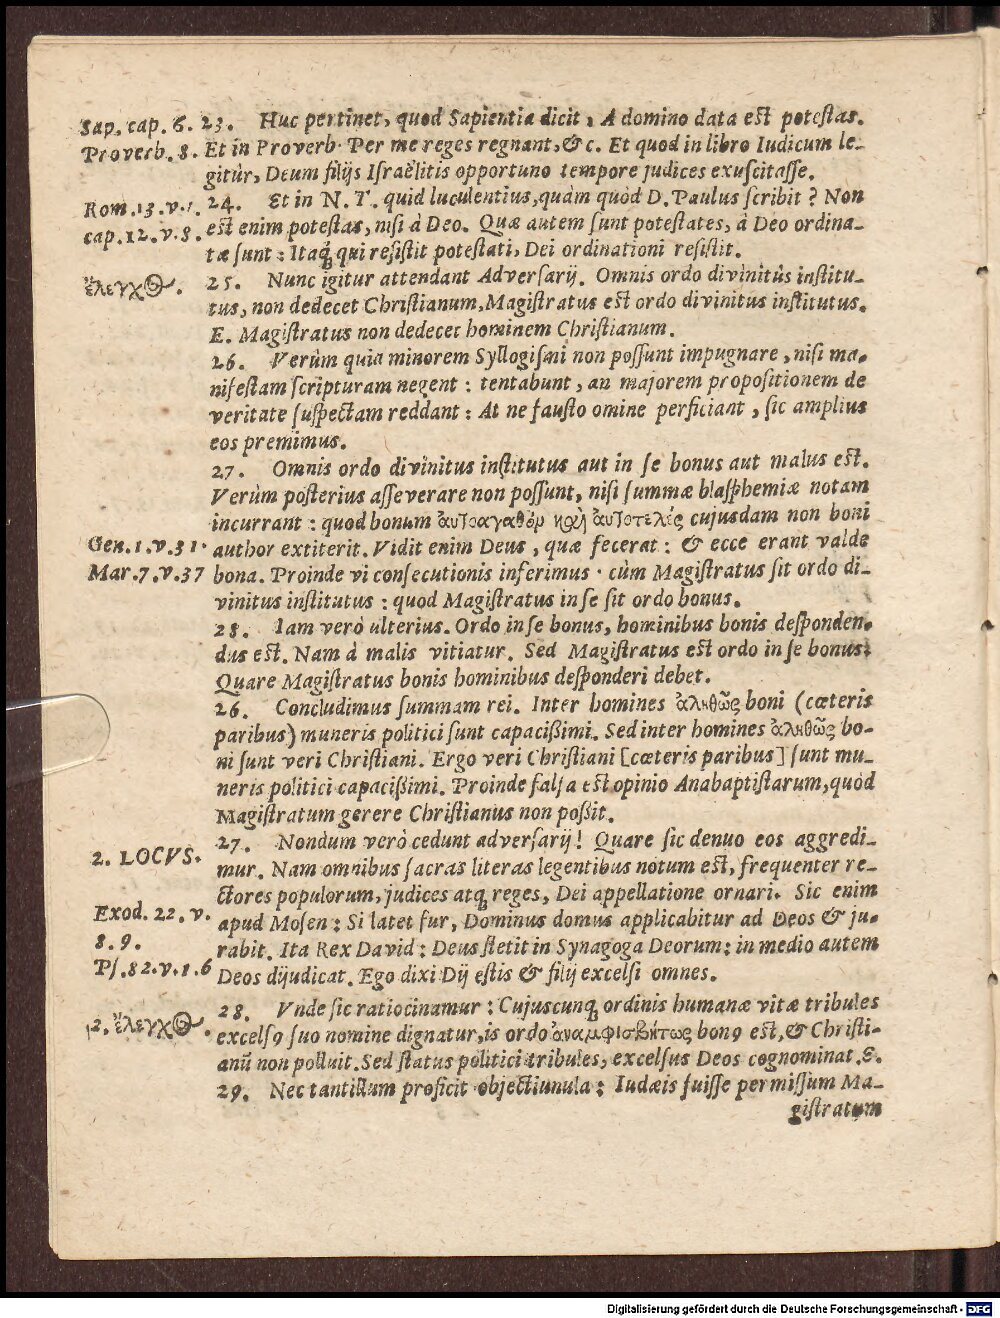 Sap. cap. 6. 23. Huc pertinet, quod Sapientia dicit, A domino data est potestas.
Proverb. 8. Et in Proverb. Per me reges regnant, &c. Et quod in libro Iudicum le-
gitur, Deum filijs Israëlitis opportuno tempore judices exuscitasse.
Rom. 13. v. 1. 24. Et in N. T. quid luculentius, quàm quòd D. Paulus scribit? Non
cap. 12. v. 8. est enim potestas, nisi à Deo. Quæ autem sunt potestates, à Deo ordina-
tæ sunt: Itaq; qui resistit potestati, Dei ordinationi resistit.
ἔλεγχος. 25. Nunc igitur attendant Adversarij. Omnis ordo divinitùs institu-
tus, non dedecet Christianum, Magistratus est ordo divinitus institutus.
E. Magistratus non dedecet hominem Christianum.
26. Verùm quia minorem Syllogismi non possunt impugnare, nisi ma-
nifestam scripturam negent: tentabunt, an majorem propositionem de
veritate suspectam reddant: At ne fausto omine perficiant, sic amplius
eos premimus.
27. Omnis ordo divinitus institutus aut in se bonus aut malus est.
Verùm posterius asseverare non possunt, nisi summæ blasphemiæ notam
incurrant: quod bonum ἀυτοαγαθὸν καὶ ἀυτοτελές cujusdam non boni
Gen. 1. v. 31. author extiterit. Vidit enim Deus, quæ fecerat: & ecce erant valde
Mar. 7. v. 37 bona. Proinde vi consecutionis inferimus. cùm Magistratus sit ordo di-
vinitus institutus: quod Magistratus in se sit ordo bonus.
28. Iam verò ulterius. Ordo in se bonus, hominibus bonis desponden-
dus est. Nam à malis vitiatur. Sed Magistratus est ordo in se bonus:
Quare Magistratus bonis hominibus desponderi debet.
26. Concludimus summam rei. Inter homines ἀληθῶς boni (cœteris
paribus) muneris politici sunt capacißimi. Sed inter homines ἀληθῶς bo-
ni sunt veri Christiani. Ergo veri Christiani [cœteris paribus] sunt mu-
neris politici capacißimi. Proinde falsa est opinio Anabaptistarum, quòd
Magistratum gerere Christianus non poßit.
27. Nondum verò cedunt adversarij! Quare sic denuo eos aggredi-
2. LOCVS. mur. Nam omnibus sacras literas legentibus notum est, frequenter re-
ctores populorum, judices atq; reges, Dei appellatione ornari. Sic enim
Exod. 22. v. apud Mosen: Si latet fur, Dominus domus applicabitur ad Deos & ju-
8. 9. rabit. Ita Rex David: Deus stetit in Synagoga Deorum: in medio autem
Ps. 82. v. 1. 6 Deos dijudicat. Ego dixi Dij estis & filij excelsi omnes.
28. Vnde sic ratiocinamur: Cujuscunq; ordinis humanæ vitæ tribules
2. ἔλεγχος. excelsꝰ suo nomine dignatur, is ordo ἀναμφισβήτως bonꝰ est, & Christi-
anū non polluit. Sed status politici tribules, excelsus Deos cognominat. E.
29. Nec tantillum proficit objectiuncula: Iudæis fuisse permissum Ma-
gistratum
Digitalisierung gefördert durch die Deutsche Forschungsgemeinschaft - DFG